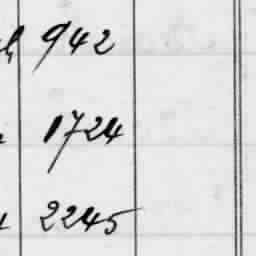 942
1724
2245